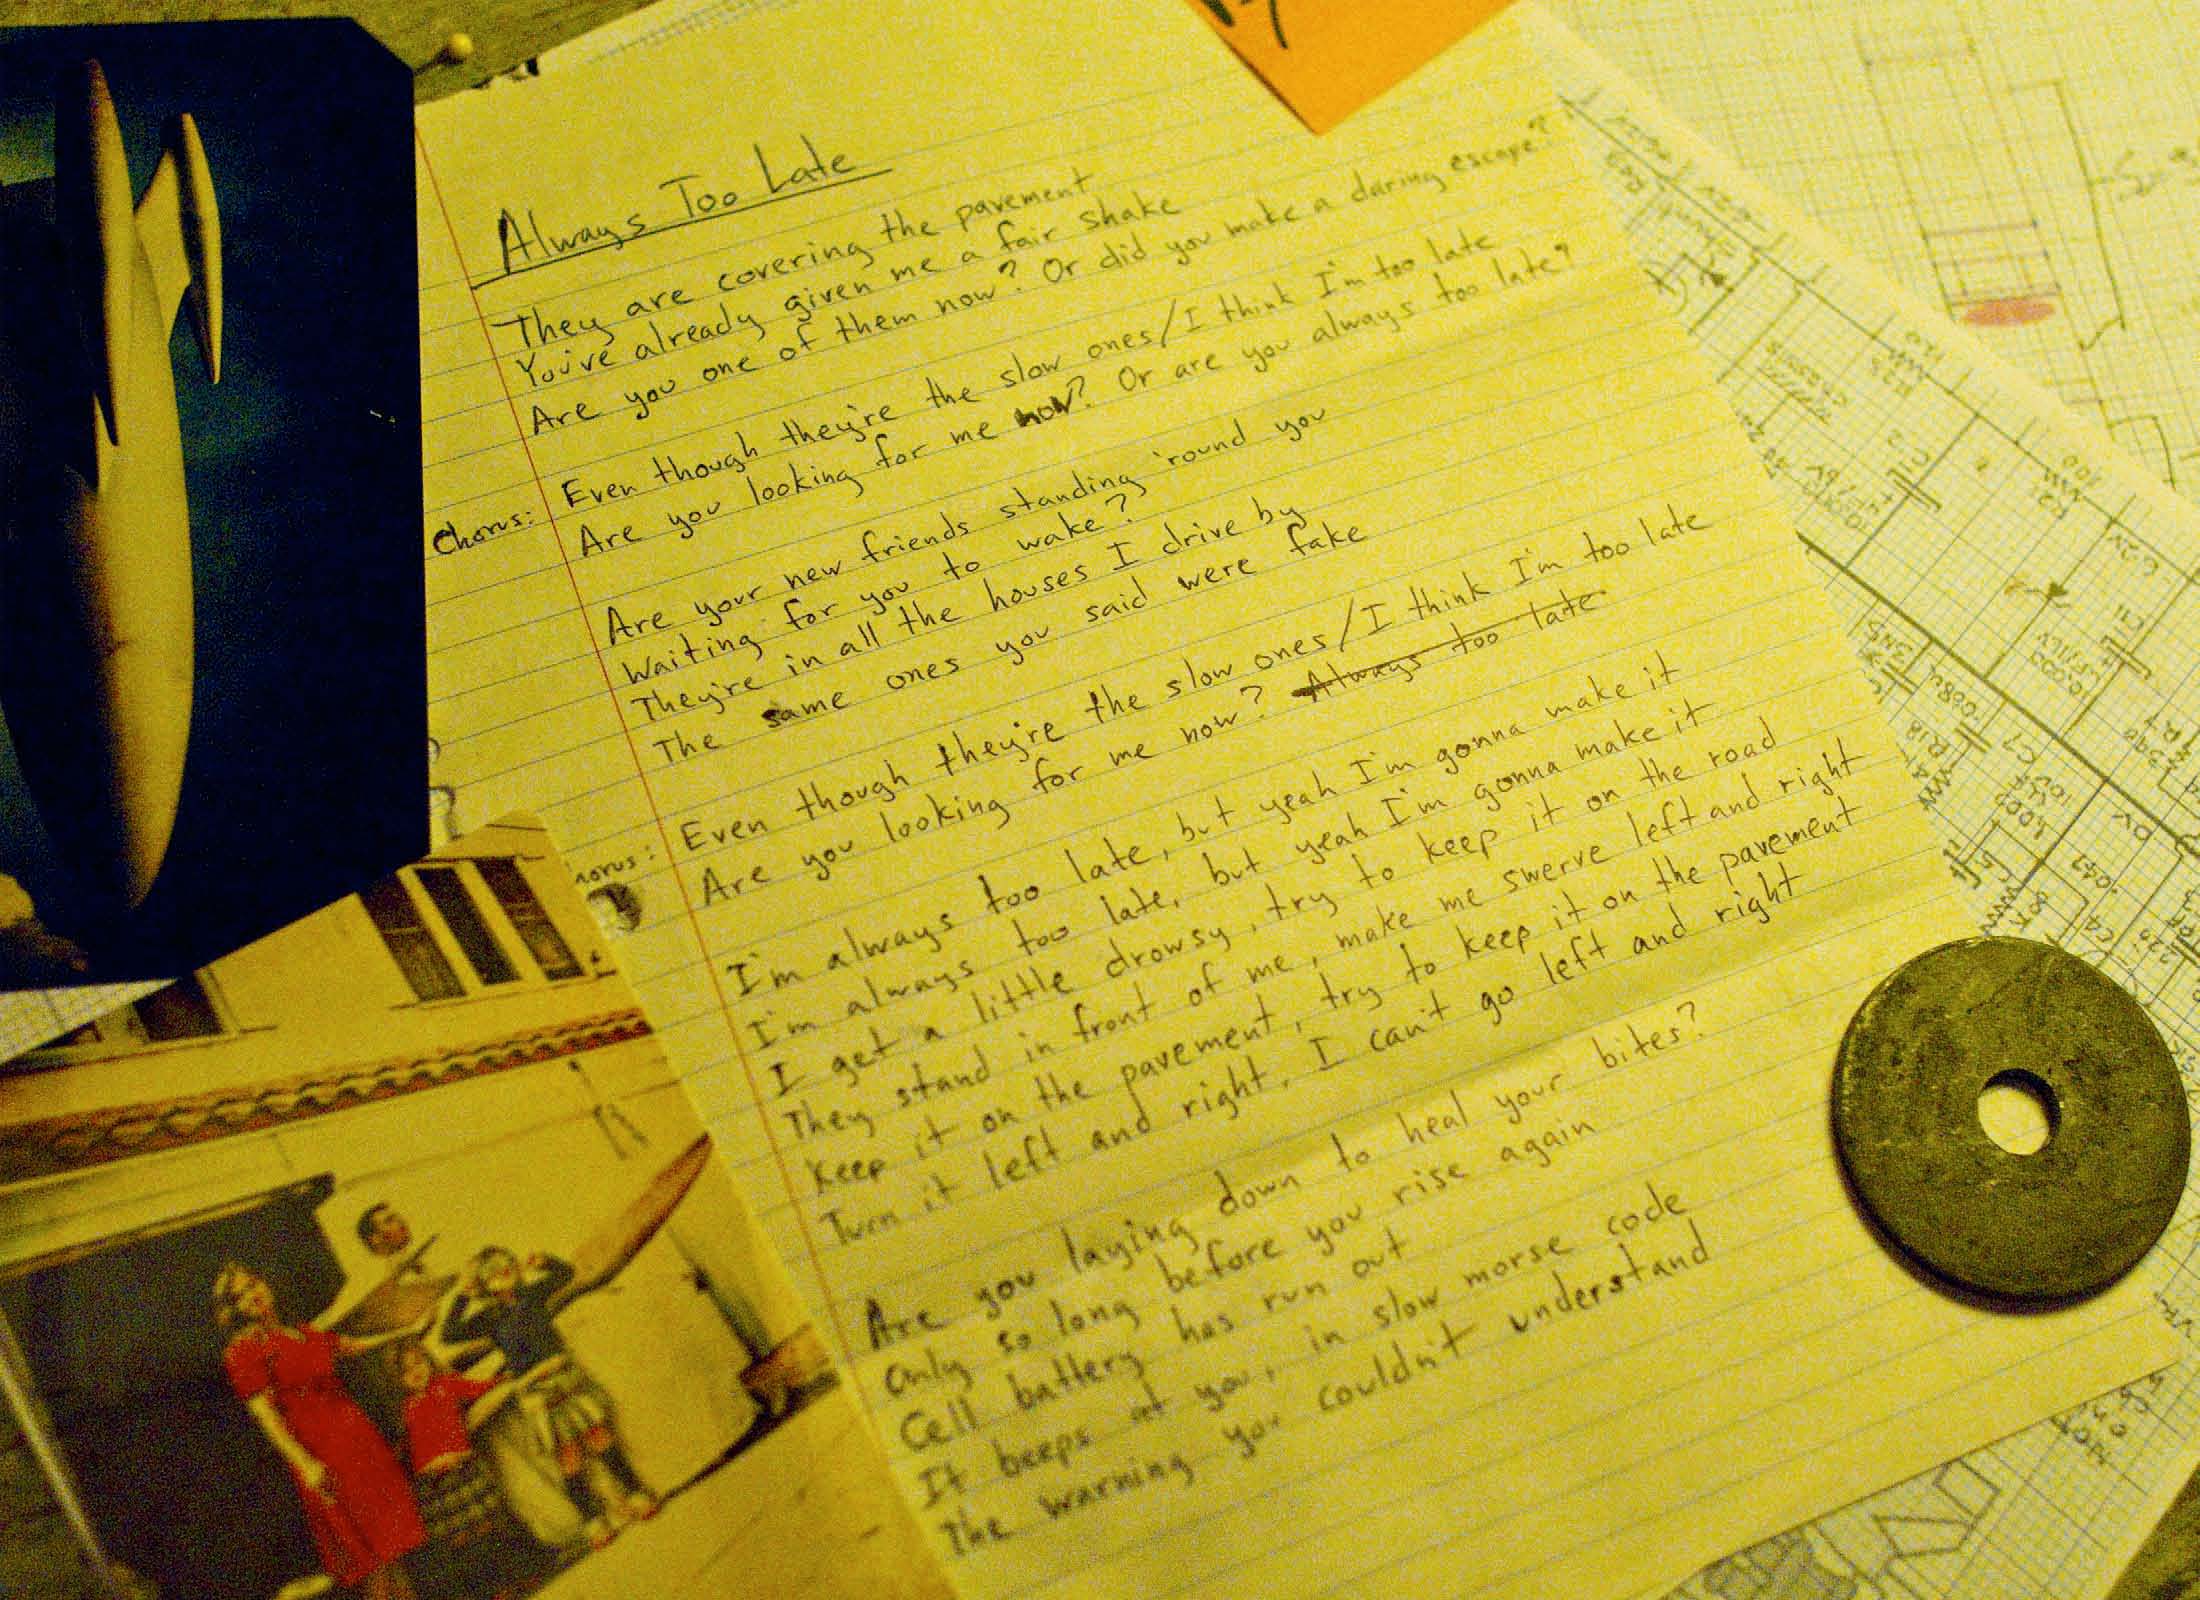 Always Too Late
They are covering the pavement
You've already given me a fair shake
Are you one of them now? Or did you make a daring escape?
Chorus: Even though they're the slow ones/I think I'm too late
Are you looking for me now? Or are you always too late?
Are your new friends standing 'round you
Waiting for you to wake?
They're in all the houses I drive by
The same ones you said were fake
horus: Even though they're the slow ones/I think I'm too late
Are you looking for me now? Always too late
I'm always too late, but yeah I'm gonna make it
I'm always too late, but yeah I'm gonna make it
I get a little drowsy, try to keep it on the road
They stand in front of me, make me swerve left and right
Keep it on the pavement, try to keep it on the pavement
Turn it left and right, I can't go left and right
Are you laying down to heal your bites?
Only so long before you rise again
Cell battery has run out
It beeps at you, in slow morse code
The warning you couldn't understand
R25
100
C12
6.2V
C11
10,000
R18
C7
.0084
SNS
.047
C4